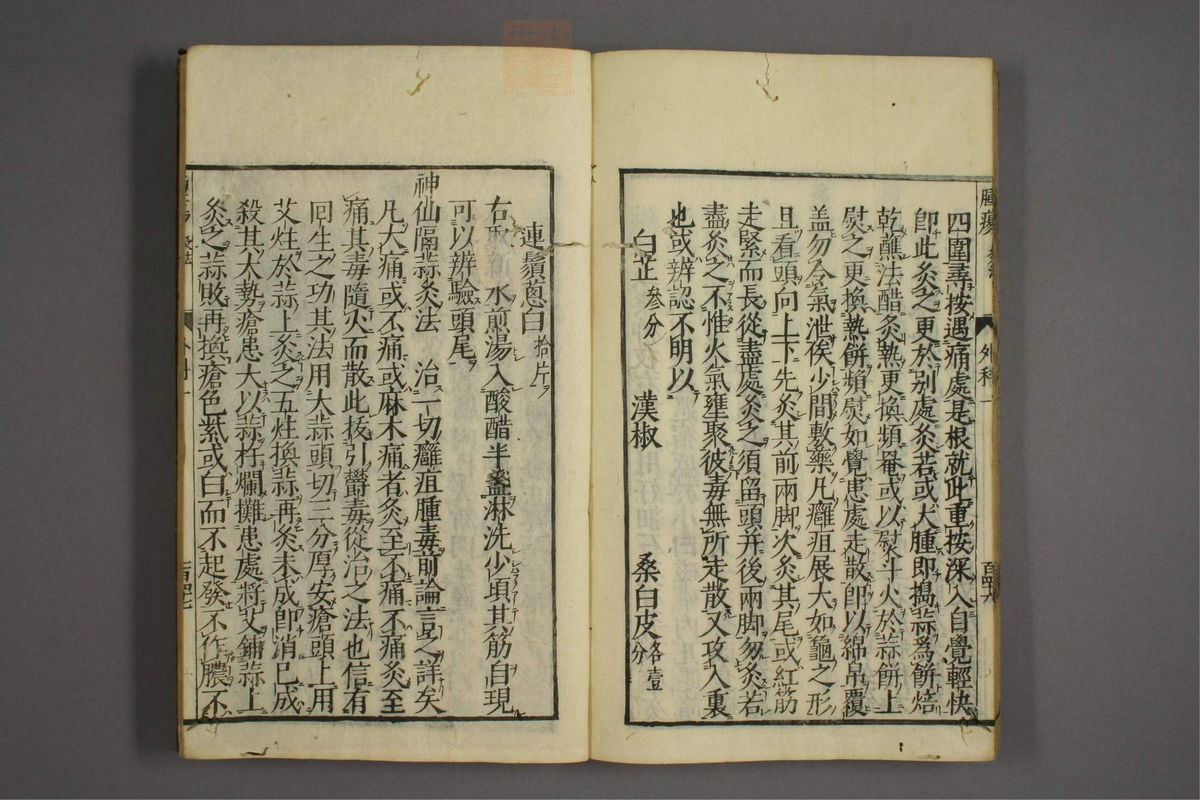 四圍尋按遇痛處是根就此重按深入自覺輕快
卽此灸之更於別處灸若或大腫即搗蒜爲餅焙
乾蘸法醋灸熱更換頻罨或以熨斗火於蒜餅上
熨之更換熱餅頻熨如覺患處走散即以綿帛覆
盖勿令氣泄俟少間敷藥凡癰疽展大如龜之形
且看頭向上下先灸其前兩脚次灸其尾或紅筋
走緊而長從盡處灸之須留頭并後兩脚勿灸若
盡灸之不惟火氣壅聚彼毒無所走散又攻入裏
也或辨認不明以
白芷叄分 漢椒 桑白皮各壹分
連鬚蔥白拾片
右取 水煎湯入酸醋半盞淋洗少頃其筋自現
可以辨驗頭尾
神仙隔蒜灸法 治一切癰疽腫毒前論言之詳矣
凡大痛或不痛或麻木痛者灸至不痛不痛灸至
痛其毒隨火而散此拔引鬱毒從治之法也信有
囘生之功其法用大蒜頭切三分厚安瘡頭上用
艾炷於蒜上灸之五炷換蒜再灸未成即消已成
殺其大勢瘡患大以蒜杵爛攤患處將艾鋪蒜上
灸之蒜敗再換瘡色紫或白而不起發不作膿不
外科一
百四十六